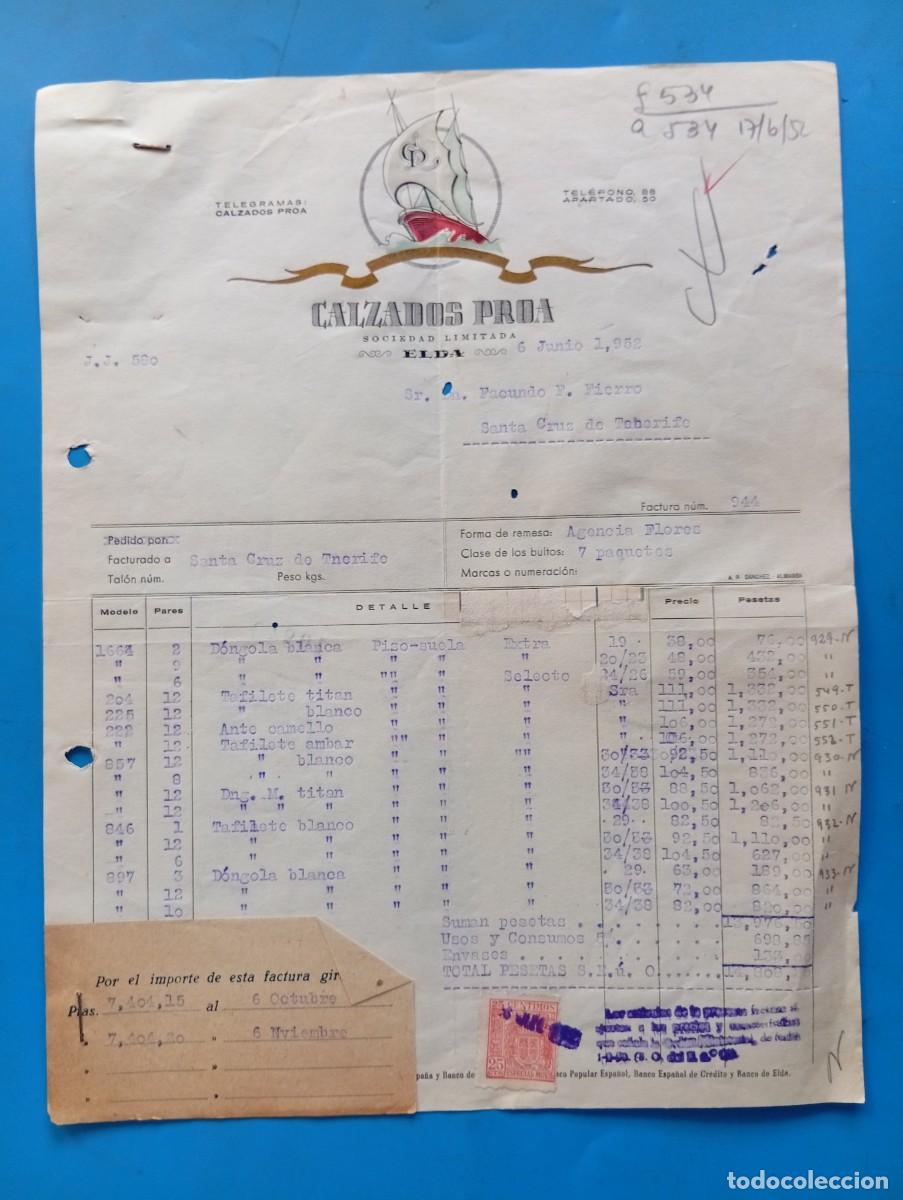 f 534
a 534 17/6/52
TELEGRAMAS:
CALZADOS PROA
TELÉFONO, 88
APARTADO, 50
CP
CALZADOS PROA
SOCIEDAD LIMITADA
ELDA
6 Junio 1,952
J.J. 580
Sr. Dn. Facundo F. Fierro
Santa Cruz de Tenerife
Factura núm. 944
Pedido por:
Facturado a Santa Cruz de Tnerife
Talón núm. Peso kgs.
Forma de remesa: Agencia Flores
Clase de los bultos: 7 paquetes
Marcas o numeración:
Modelo Pares DETALLE Precio Pesetas
1664 2 Dóngola blanca Piso-suela Extra 19 38,00 76,00 929-N
" 9 " " " " " 20/23 48,00 432,00 "
" 6 " " "" " Selecto 24/26 59,00 354,00 "
204 12 Tafilete titan " " " Sra 111,00 1,332,00 549-T
225 12 " blanco " " " " 111,00 1,332,00 550-T
222 12 Ante camello " " " " 106,00 1,272,00 551-T
" 12 Tafilete ambar "" " " " 106,00 1,272,00 552-T
857 12 " blanco " " "" 30/33 92,50 1,110,00 930-N
" 8 " " " " " 34/38 104,50 836,00 "
" 12 Dng. M. titan " " " 30/33 88,50 1,062,00 931 N
" 12 " " " " " " 34/38 100,50 1,206,00 "
846 1 Tafilete blanco " " " 29 82,50 82,50 932-N
" 12 " " " " " 30/33 92,50 1,110,00 "
" 6 " " " " " 34/38 104,50 627,00 "
897 3 Dóngola blanca " " " 29 63,00 189,00 933-N
" 12 " " " " " 30/33 72,00 864,00 "
" 10 " " " " " 34/38 82,00 820,00 "
Suman pesetas 13,976,50
Usos y Consumos 5% 698,85
Envases 133,00
TOTAL PESETAS S.E.ú O. 14,808,
Por el importe de esta factura gir
Ptas. 7,404,15 al 6 Octubre
" 7,404,20 " 6 Nviembre
" "
" "
25 CENTIMOS
25
ESPECIAL MOVIL
Los artículos de la presente factura se
ajustan a los precios y características
que señala la Orden Ministerial, de fecha
N
paña y Banco de
co Popular Español, Banco Español de Crédito y Banco de Elda.
todocoleccion